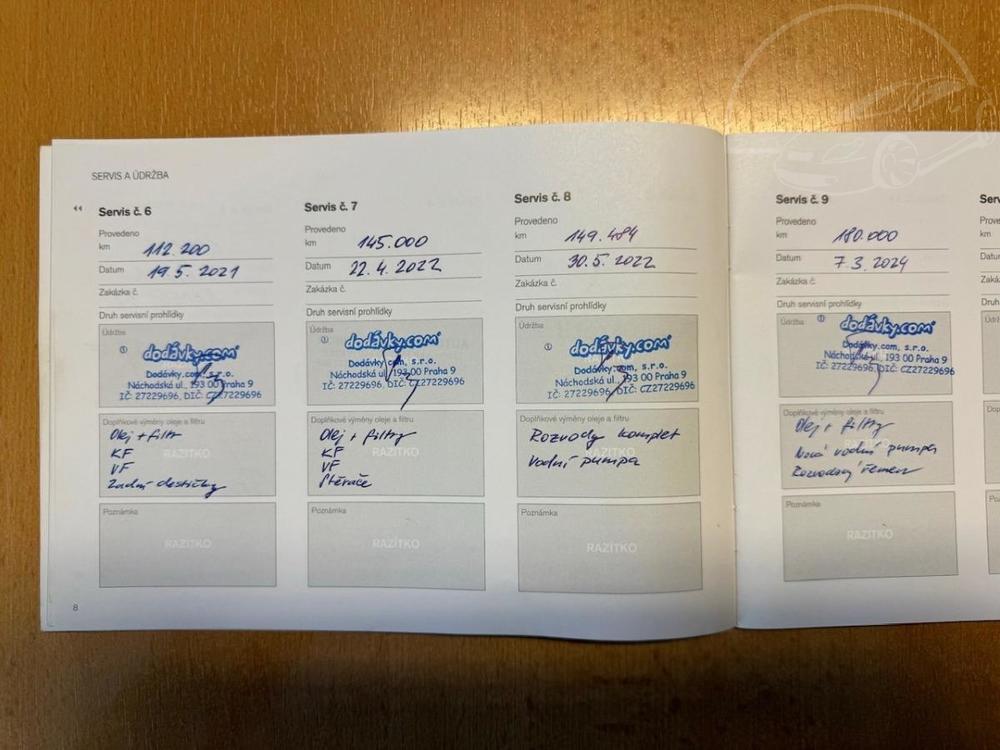 SERVIS A ÚDRŽBA
Servis č. 6
Provedeno
km 112.200
Datum 19.5.2021
Zakázka č.
Druh servisní prohlídky
Údržba
dodávky.com
Dodávky.com, s.r.o.
Náchodská ul., 193 00 Praha 9
IČ: 27229696, DIČ: CZ27229696
Doplňkové výměny oleje a filtru
Olej + filtr
KF
VF
RAZÍTKO
Zadní destičky
Poznámka
RAZÍTKO
8
Servis č. 7
Provedeno
km 145.000
Datum 22.4.2022
Zakázka č.
Druh servisní prohlídky
Údržba
dodávky.com
Dodávky.com, s.r.o.
Náchodská ul., 193 00 Praha 9
IČ: 27229696, DIČ: CZ27229696
Doplňkové výměny oleje a filtru
Olej + filtry
KF
VF
RAZÍTKO
Stěrače
Poznámka
RAZÍTKO
Servis č. 8
Provedeno
km 149.484
Datum 30.5.2022
Zakázka č.
Druh servisní prohlídky
Údržba
dodávky.com
Dodávky.com, s.r.o.
Náchodská ul., 193 00 Praha 9
IČ: 27229696, DIČ: CZ27229696
Doplňkové výměny oleje a filtru
Rozvody komplet
Vodní pumpa
Poznámka
RAZÍTKO
Servis č. 9
Provedeno
km 180.000
Datum 7.3.2024
Zakázka č.
Druh servisní prohlídky
Údržba
dodávky.com
Dodávky.com, s.r.o.
Náchodská ul., 193 00 Praha 9
IČ: 27229696, DIČ: CZ27229696
Doplňkové výměny oleje a filtru
Olej + filtry
Nová vodní pumpa
Rozvodový řemen
Poznámka
RAZÍTKO